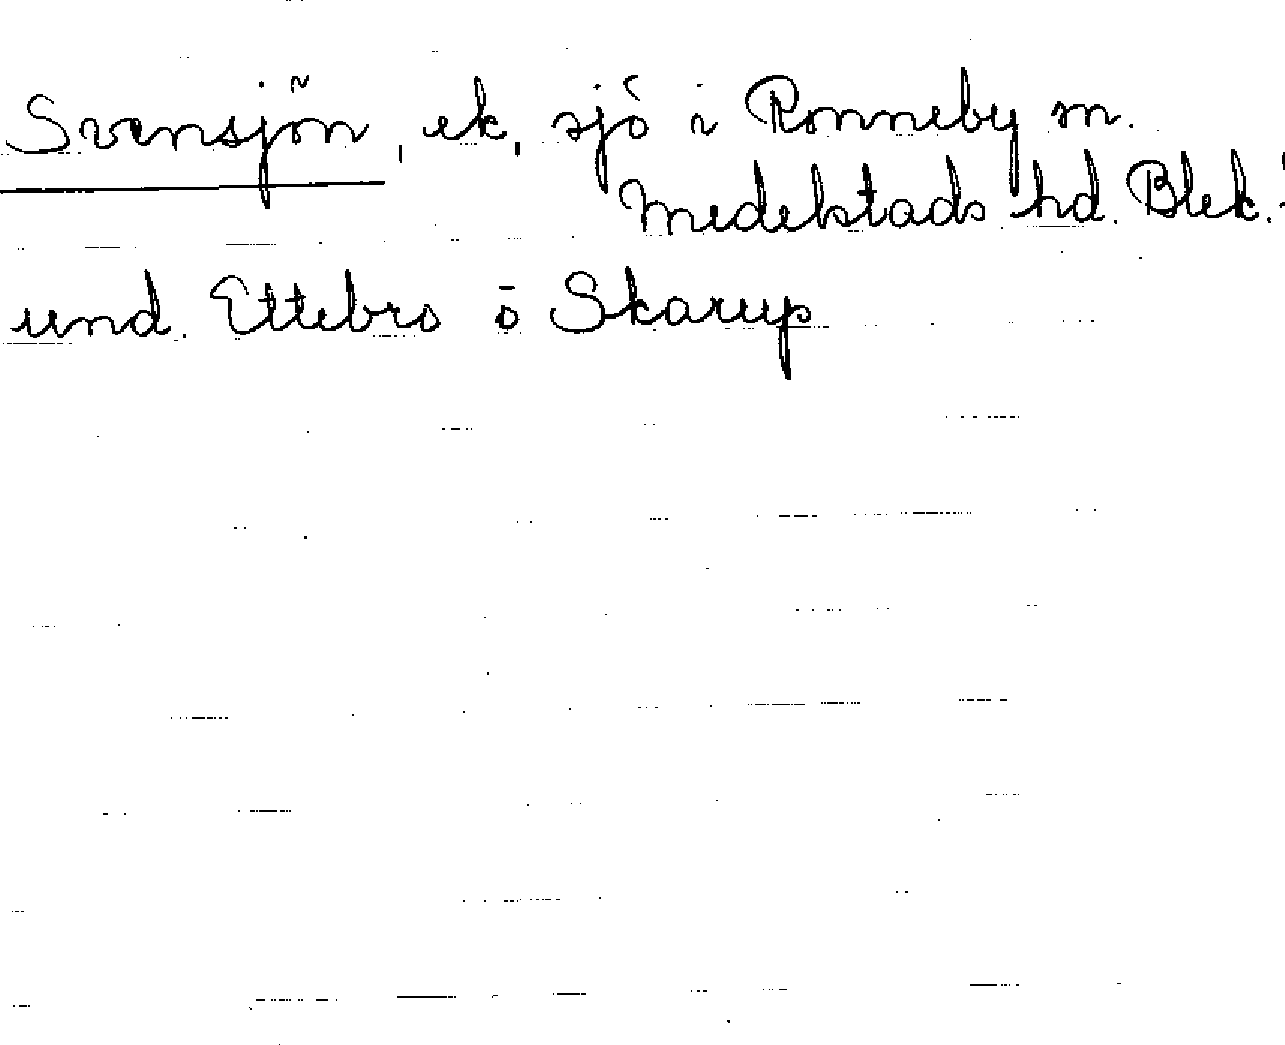 Svensjön, ek, sjö i Ronneby sn.
Medelstads hd. Blek.
und. Ettebro ö Skarup